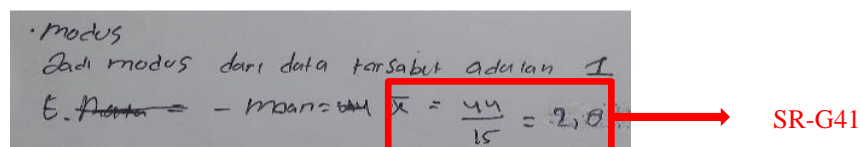 · modus
Jadi modus dari data tarsabut adalan 1
E. - mean = x̄ = 44/15 = 2,8
SR-G41